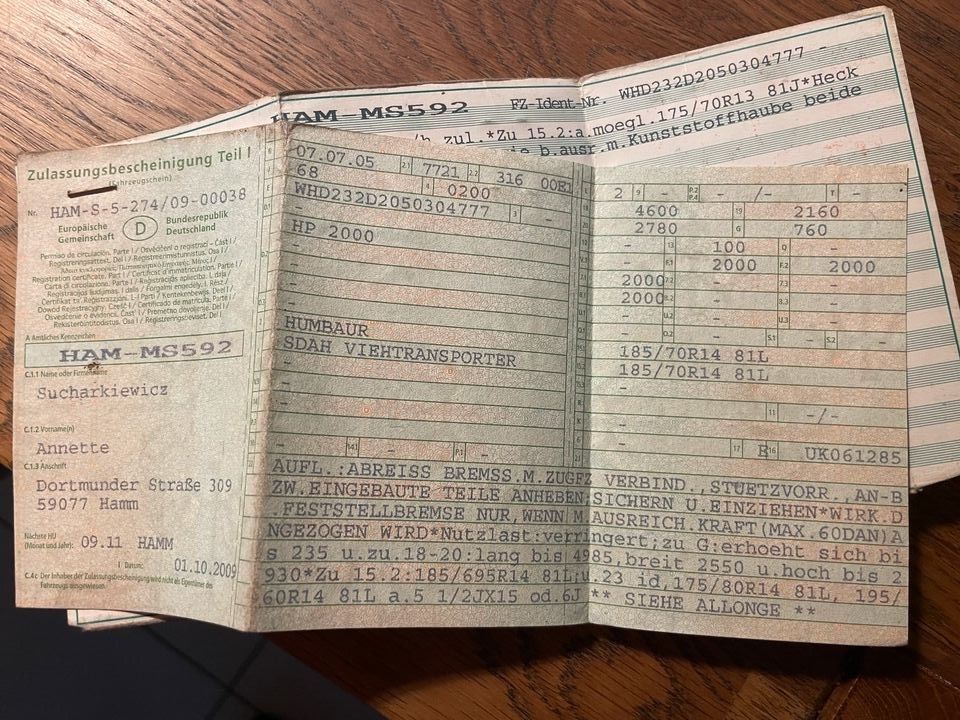 HAM-MS592 FZ-Ident-Nr. WHD232D2050304777 -
zul.*Zu 15.2:a.moegl.175/70R13 81J*Heck
b.ausr.m.Kunststoffhaube beide
Zulassungsbescheinigung Teil I
(Fahrzeugschein)
Nr. HAM-S-5-274/09-00038
Europäische Gemeinschaft D Bundesrepublik Deutschland
Permiso de circulación. Parte I / Osvědčení o registraci - Část I /
Registreringsattest. Del I /
Registration certificate. Part I / Certificat d'immatriculation. Partie I /
Carta di circolazione. Parte I / Reģistrācijas apliecība. I. daļa /
Registracijos liudijimas. I dalis / Forgalmi engedély. I. Rész /
Dowód Rejestracyjny. Część I / Certificado de matrícula. Parte I /
Osvedčenie o evidencii. Časť I / Prometno dovoljenje. Del I /
Rekisteröintitodistus. Osa I / Registreringsbeviset. Del I
A Amtliches Kennzeichen
HAM-MS592
C.1.1 Name oder Firmenname
Sucharkiewicz
C.1.2 Vorname(n)
Annette
C.1.3 Anschrift
Dortmunder Straße 309
59077 Hamm
Nächste HU
(Monat und Jahr): 09.11 HAMM
I Datum: 01.10.2009
C.4c Der Inhaber der Zulassungsbescheinigung wird nicht als Eigentümer des
Fahrzeugs ausgewiesen
07.07.05 2.1 7721 2.2 316 00E1
68 4 0200
WHD232D2050304777 3 -
-
HP 2000
-
-
-
HUMBAUR
SDAH VIEHTRANSPORTER
-
-
-
- 14.1 - P.1 -
2 9 - P.2 P.4 - /- T -
4600 19 2160
2780 G 760
- 13 100 Q -
- F.1 2000 F.2 2000
2000 7.2 - 7.3 -
2000 8.2 - 8.3 -
- U.2 - U.3 -
- O.2 - S.1 - S.2 -
185/70R14 81L
185/70R14 81L
-
- 11 -/-
- 17 E 16 UK061285
AUFL.:ABREISS BREMSS.M.ZUGFZ VERBIND.,STUETZVORR.,AN-B
ZW.EINGEBAUTE TEILE ANHEBEN,SICHERN U.EINZIEHEN*WIRK.D
.FESTSTELLBREMSE NUR,WENN M.AUSREICH.KRAFT(MAX.60DAN)A
NGEZOGEN WIRD*Nutzlast:verringert;zu G:erhoeht sich bi
s 235 u.zu.18-20:lang bis 4985,breit 2550 u.hoch bis 2
930*Zu 15.2:185/695R14 81L;u.23 id,175/80R14 81L, 195/
60R14 81L a.5 1/2JX15 od.6J ** SIEHE ALLONGE **